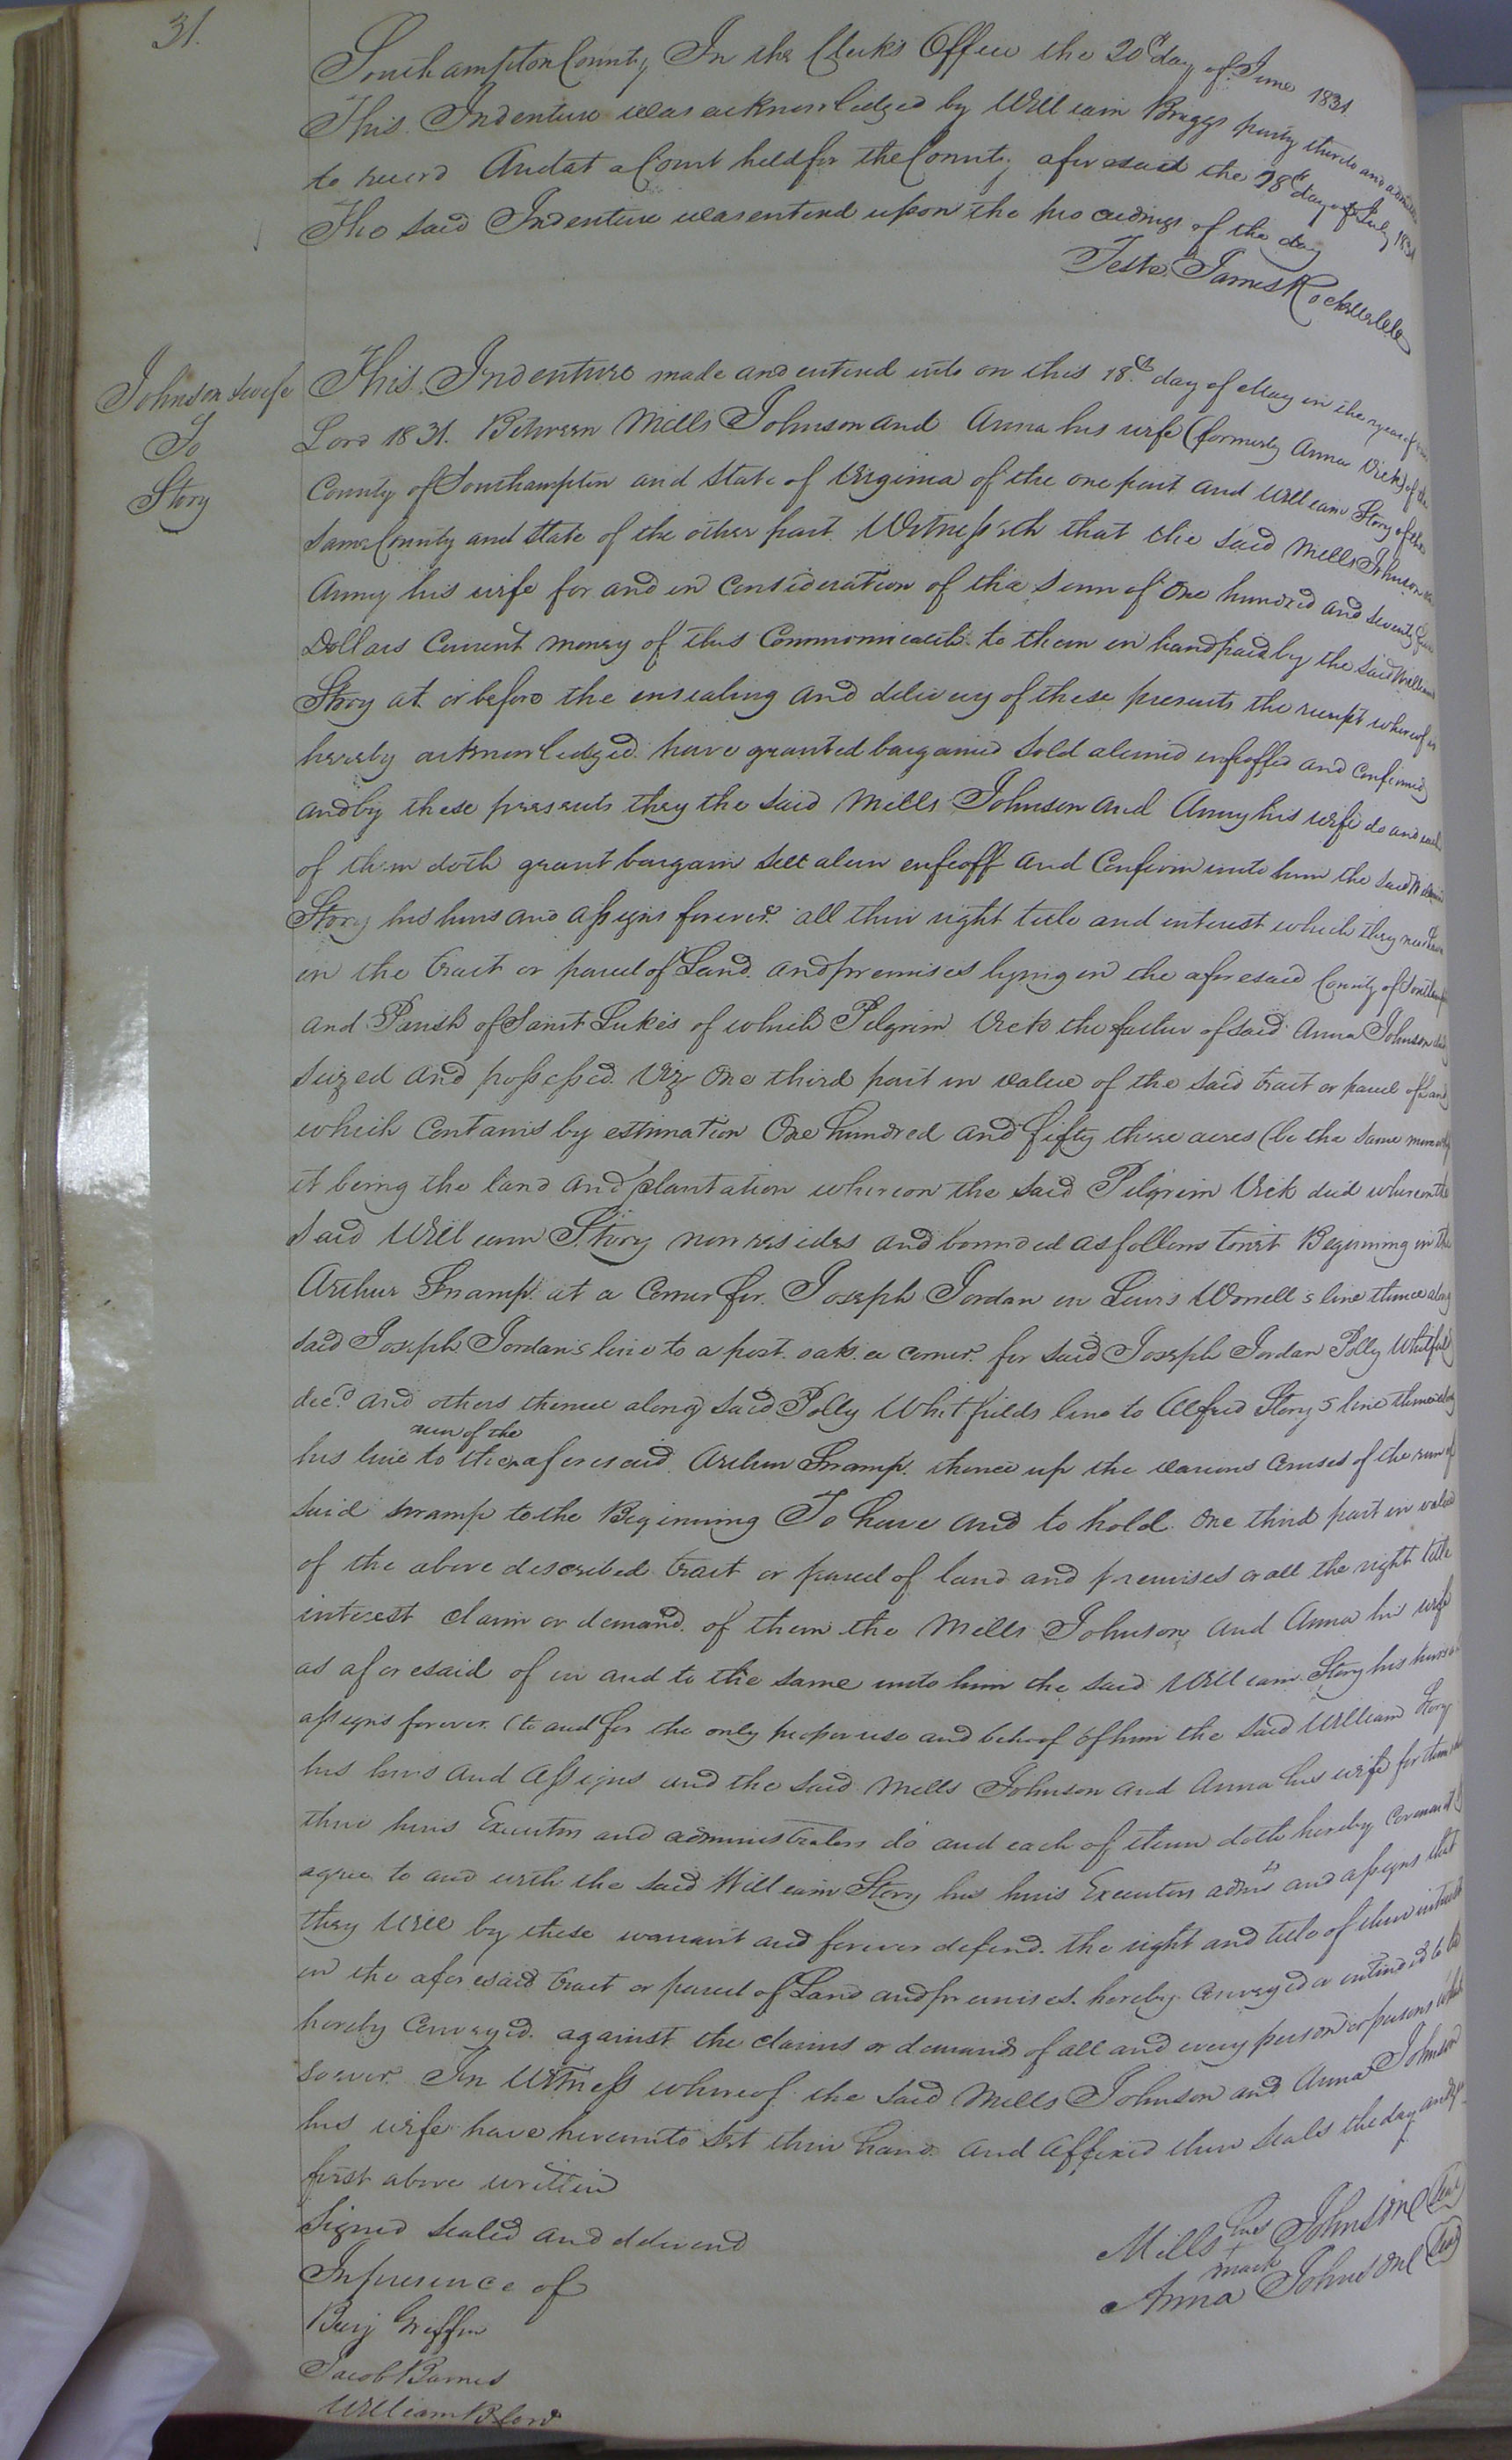 31.
Southampton County In the Clerks Office the 20th day of June 1831.
This Indenture was acknowledged by William Briggs party thereto and admitted
to record And at a Court held for the County aforesaid the 18th day of July 1831
The said Indenture was entered upon the proceedings of the day
Teste James Rochelle
Johnson & wife
To
Story
This Indenture made and entered into on this 18th day of May in the year of our
Lord 1831. Between Mills Johnson and Anna his wife (formerly Anna Vick) of the
County of Southampton and State of Virginia of the one part and William Story of the
same County and State of the other part Witnesseth that the said Mills Johnson and
Anny his wife for and in Consideration of the sum of One hundred and seventy
Dollars Current money of this Commonwealth to them in hand paid by the said William
Story at or before the ensealing and delivery of these presents the receipt whereof is
hereby acknowledged have granted bargained sold aliened enfeoffed and Confirmed
and by these presents they the said Mills Johnson and Anny his wife do and each
of them doth grant bargain sell alien enfeoff and Confirm unto him the said William
Story his heirs and assigns forever all their right title and interest which they now have
in the tract or parcel of Land and premises lying in the aforesaid County of Southampton
and Parish of Saint Lukes of which Pilgrim Vick the father of said Anna Johnson died
seized and possessed. Viz One third part in value of the said tract or parcel of land
which Contains by estimation One hundred and fifty three acres (be the same more or less)
it being the land and plantation whereon the said Pilgrim Vick died whereon the
said William Story now resides and bounded as follows towit Beginning in the
Arthur Swamp at a Corner for Joseph Jordan in Lewis Worrell's line thence along
said Joseph Jordan's line to a post oak a corner for said Joseph Jordan Polly Whitfield
decd. and others thence along said Polly Whitfields line to Alfred Story's line thence along
run of the
his line to the aforesaid Arthur Swamp thence up the various Courses of the run of
said swamp to the Beginning To have and to hold One third part in value
of the above described tract or parcel of land and premises or all the right title
interest claim or demand of them the Mills Johnson and Anna his wife
as aforesaid of in and to the same unto him the said William Story his heirs and
assigns forever (to and for the only proper use and behoof of him the said William Story
his heirs and assigns and the said Mills Johnson and Anna his wife for themselves
their heirs Executors and administrators do and each of them doth hereby Covenant &
agree to and with the said William Story his heirs Executors admrs and assigns that
they will by these warrant and forever defend the right and title of their interest
in the aforesaid tract or parcel of Land and premises hereby Conveyed or intended to be
hereby Conveyed against the claims or demands of all and every person or persons whom
soever In Witness whereof the said Mills Johnson and Anna Johnson
his wife have hereunto set their hand and affixed their seals the day and year
first above written
Signed Sealed and delivered
In presence of
Benj Griffin
Jacob Barnes
William B
Mills his Johnson (Seal)
+
mark
Anna Johnson (Seal)